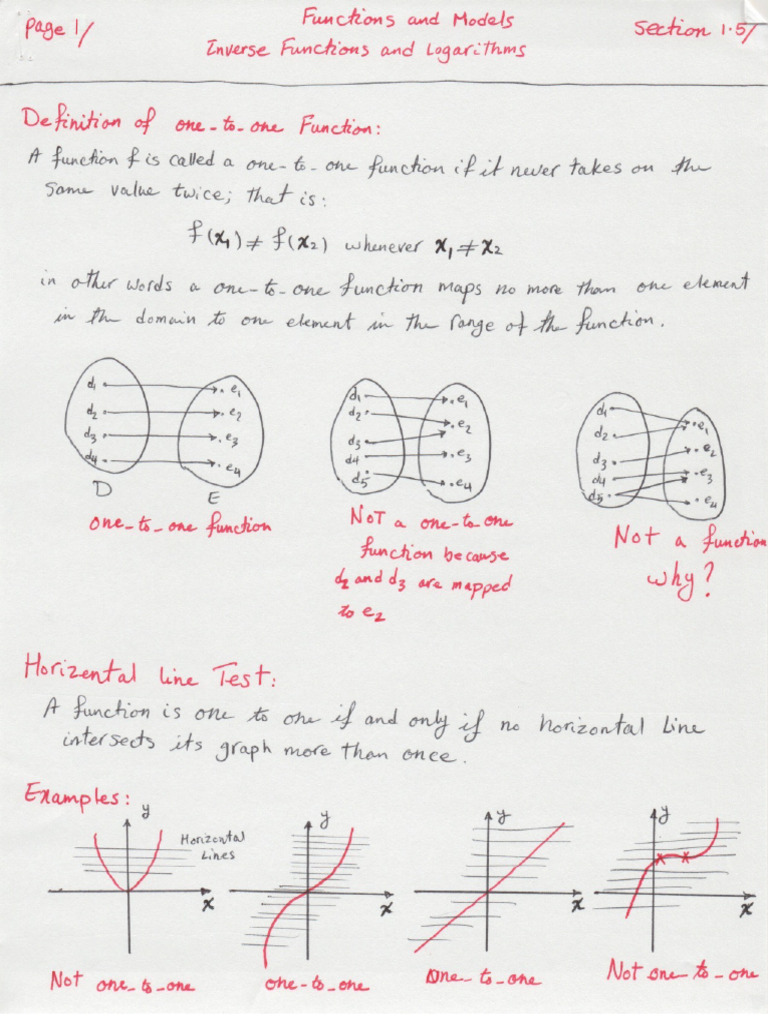 Page 1/
Functions and Models
Section 1.5/
Inverse Functions and Logarithms
Definition of one-to-one Function:
A function f is called a one-to-one function if it never takes on the
same value twice; that is:
f(x₁) ≠ f(x₂) whenever x₁ ≠ x₂
in other words a one-to-one function maps no more than one element
in the domain to one element in the range of the function.
d₁ e₁
d₂ e₂
d₃ e₃
d₄ e₄
D E
one-to-one function
d₁ e₁
d₂ e₂
d₃
d₄ e₃
d₅ e₄
NOT a one-to-one
function because
d₂ and d₃ are mapped
to e₂
d₁ e₁
d₂ e₂
d₃
d₄ e₃
d₅ e₄
Not a function
why?
Horizental line Test:
A function is one to one if and only if no horizontal Line
intersects its graph more than once.
Examples:
y
Horizental
Lines
x
Not one-to-one
y
x
one-to-one
y
x
One-to-one
y
x
Not one-to-one